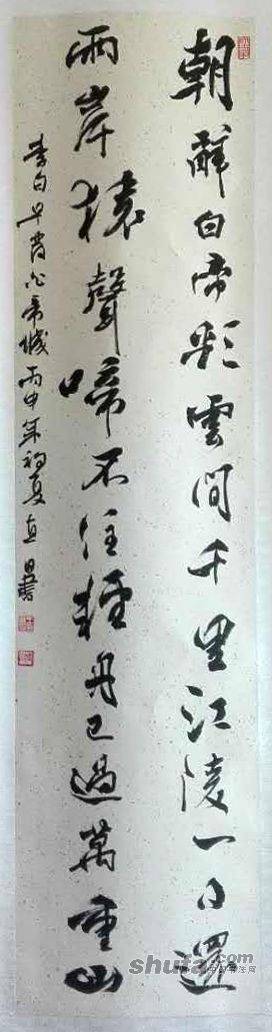 朝辭白帝彩雲間千里江陵一日還
兩岸猿聲啼不住輕舟已過萬重山
李白早發白帝城丙申年初夏
shufa.com